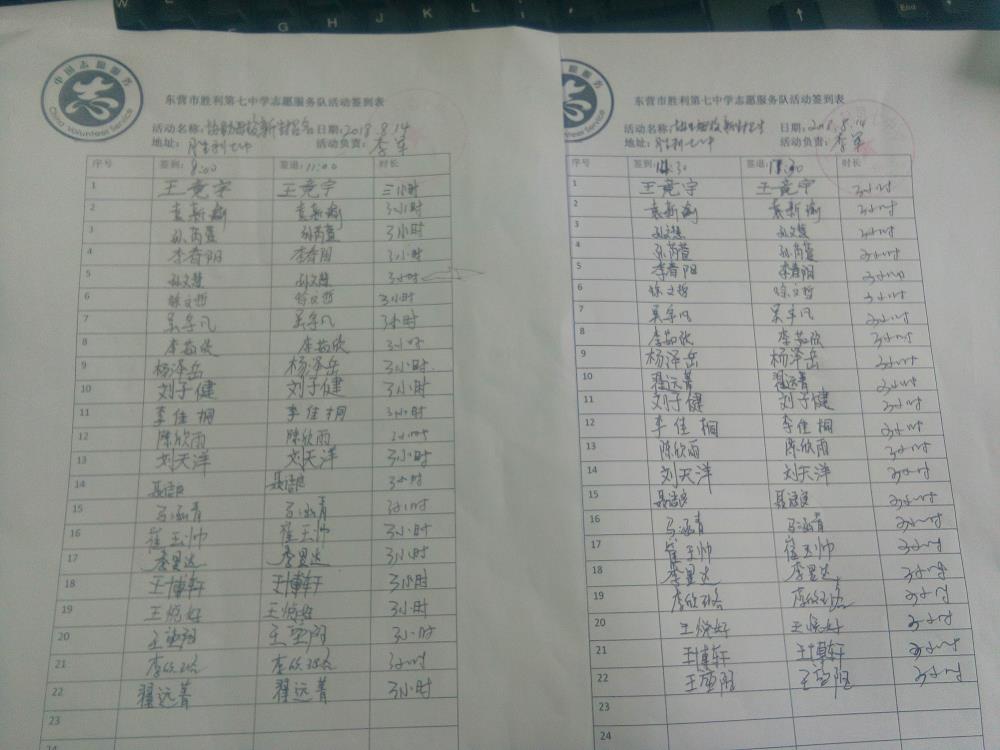 中国志愿服务
China Volunteer Service
东营市胜利第七中学志愿服务队活动签到表
活动名称: 日期:2018.8.14
地址: 胜利七中 活动负责: 李军
序号 签到: 9:00 签退:11:00 时长
1 王竟宇 王竟宇 三小时
2 袁新瑜 袁新瑜 3小时
3 孙芮萱 孙芮萱 3小时
4 李春阳 李春阳 3小时
5 孙文慧 孙文慧 3小时
6 徐文哲 徐文哲 3小时
7 吴学凡 吴学凡 3小时
8 李茹欣 李茹欣 3小时
9 杨泽岳 杨泽岳 3小时
10 刘子健 刘子健 3小时
11 李佳桐 李佳桐 3小时
12 陈欣雨 陈欣雨 3小时
13 刘天洋 刘天洋 3小时
14 3小时
15 马涵青 马涵青 3小时
16 崔玉帅 崔玉帅 3小时
17 李昱达 李昱达 3小时
18 王博轩 王博轩 3小时
19 王悦好 王悦好 3小时
20 3小时
21 3小时
22 翟远菁 翟远菁 3小时
23
24
东营市胜利第七中学志愿服务队活动签到表
活动名称: 日期:2018.8.14
地址: 胜利七中 活动负责: 李军
序号 签到: 签退: 时长
1 王竟宇 王竟宇 3小时
2 袁新瑜 袁新瑜 3小时
3 孙文慧 孙文慧 3小时
4 孙芮萱 孙芮萱 3小时
5 李春阳 李春阳 3小时
6 徐文哲 徐文哲 3小时
7 吴学凡 吴学凡 3小时
8 李茹欣 李茹欣 3小时
9 杨泽岳 杨泽岳 3小时
10 翟远菁 翟远菁 3小时
11 刘子健 刘子健 3小时
12 李佳桐 李佳桐 3小时
13 陈欣雨 陈欣雨 3小时
14 刘天洋 刘天洋 3小时
15 3小时
16 马涵青 马涵青 3小时
17 崔玉帅 崔玉帅 3小时
18 李昱达 李昱达 3小时
19 3小时
20 王悦好 王悦好 3小时
21 王博轩 王博轩 3小时
22 3小时
23
24